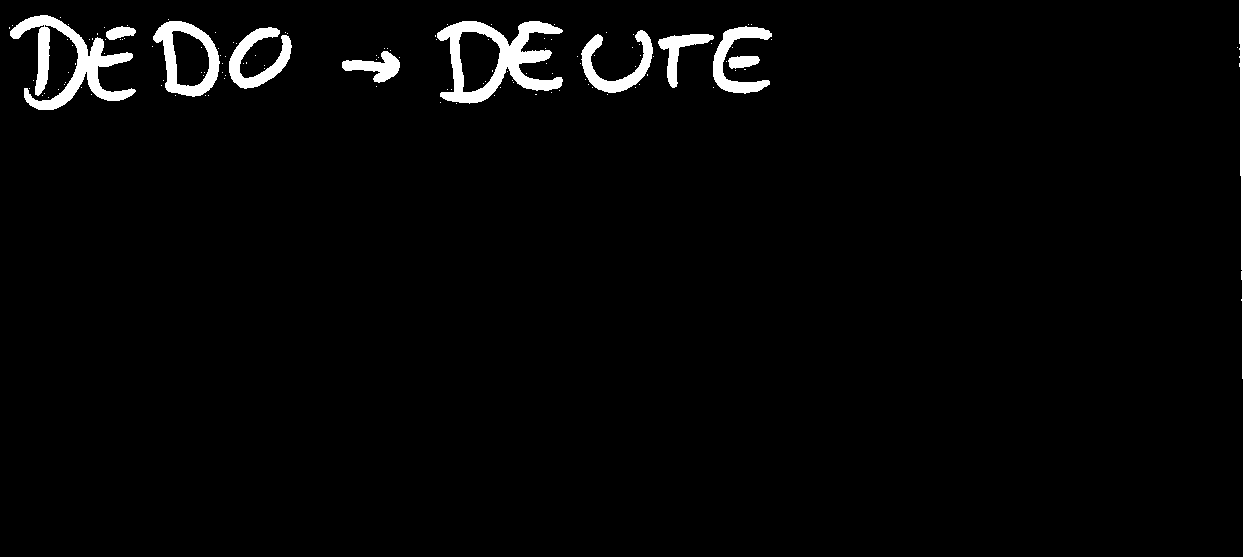 DEDO → DEUTE